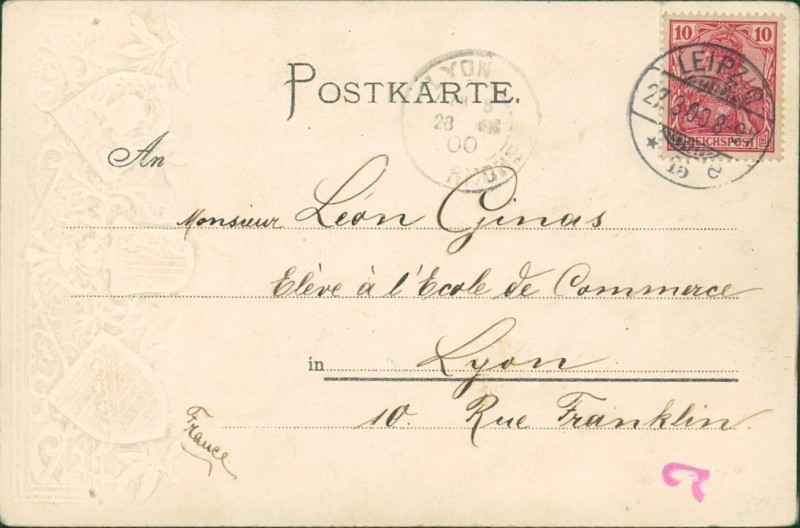 10 10
REICHSPOST
LEIPZIG
8-9
15
LYON
28
00
RHONE
POSTKARTE.
An
Monsieur Léon Ginas
Elève à l'Ecole de Commerce
in Lyon
10. Rue Franklin.
France